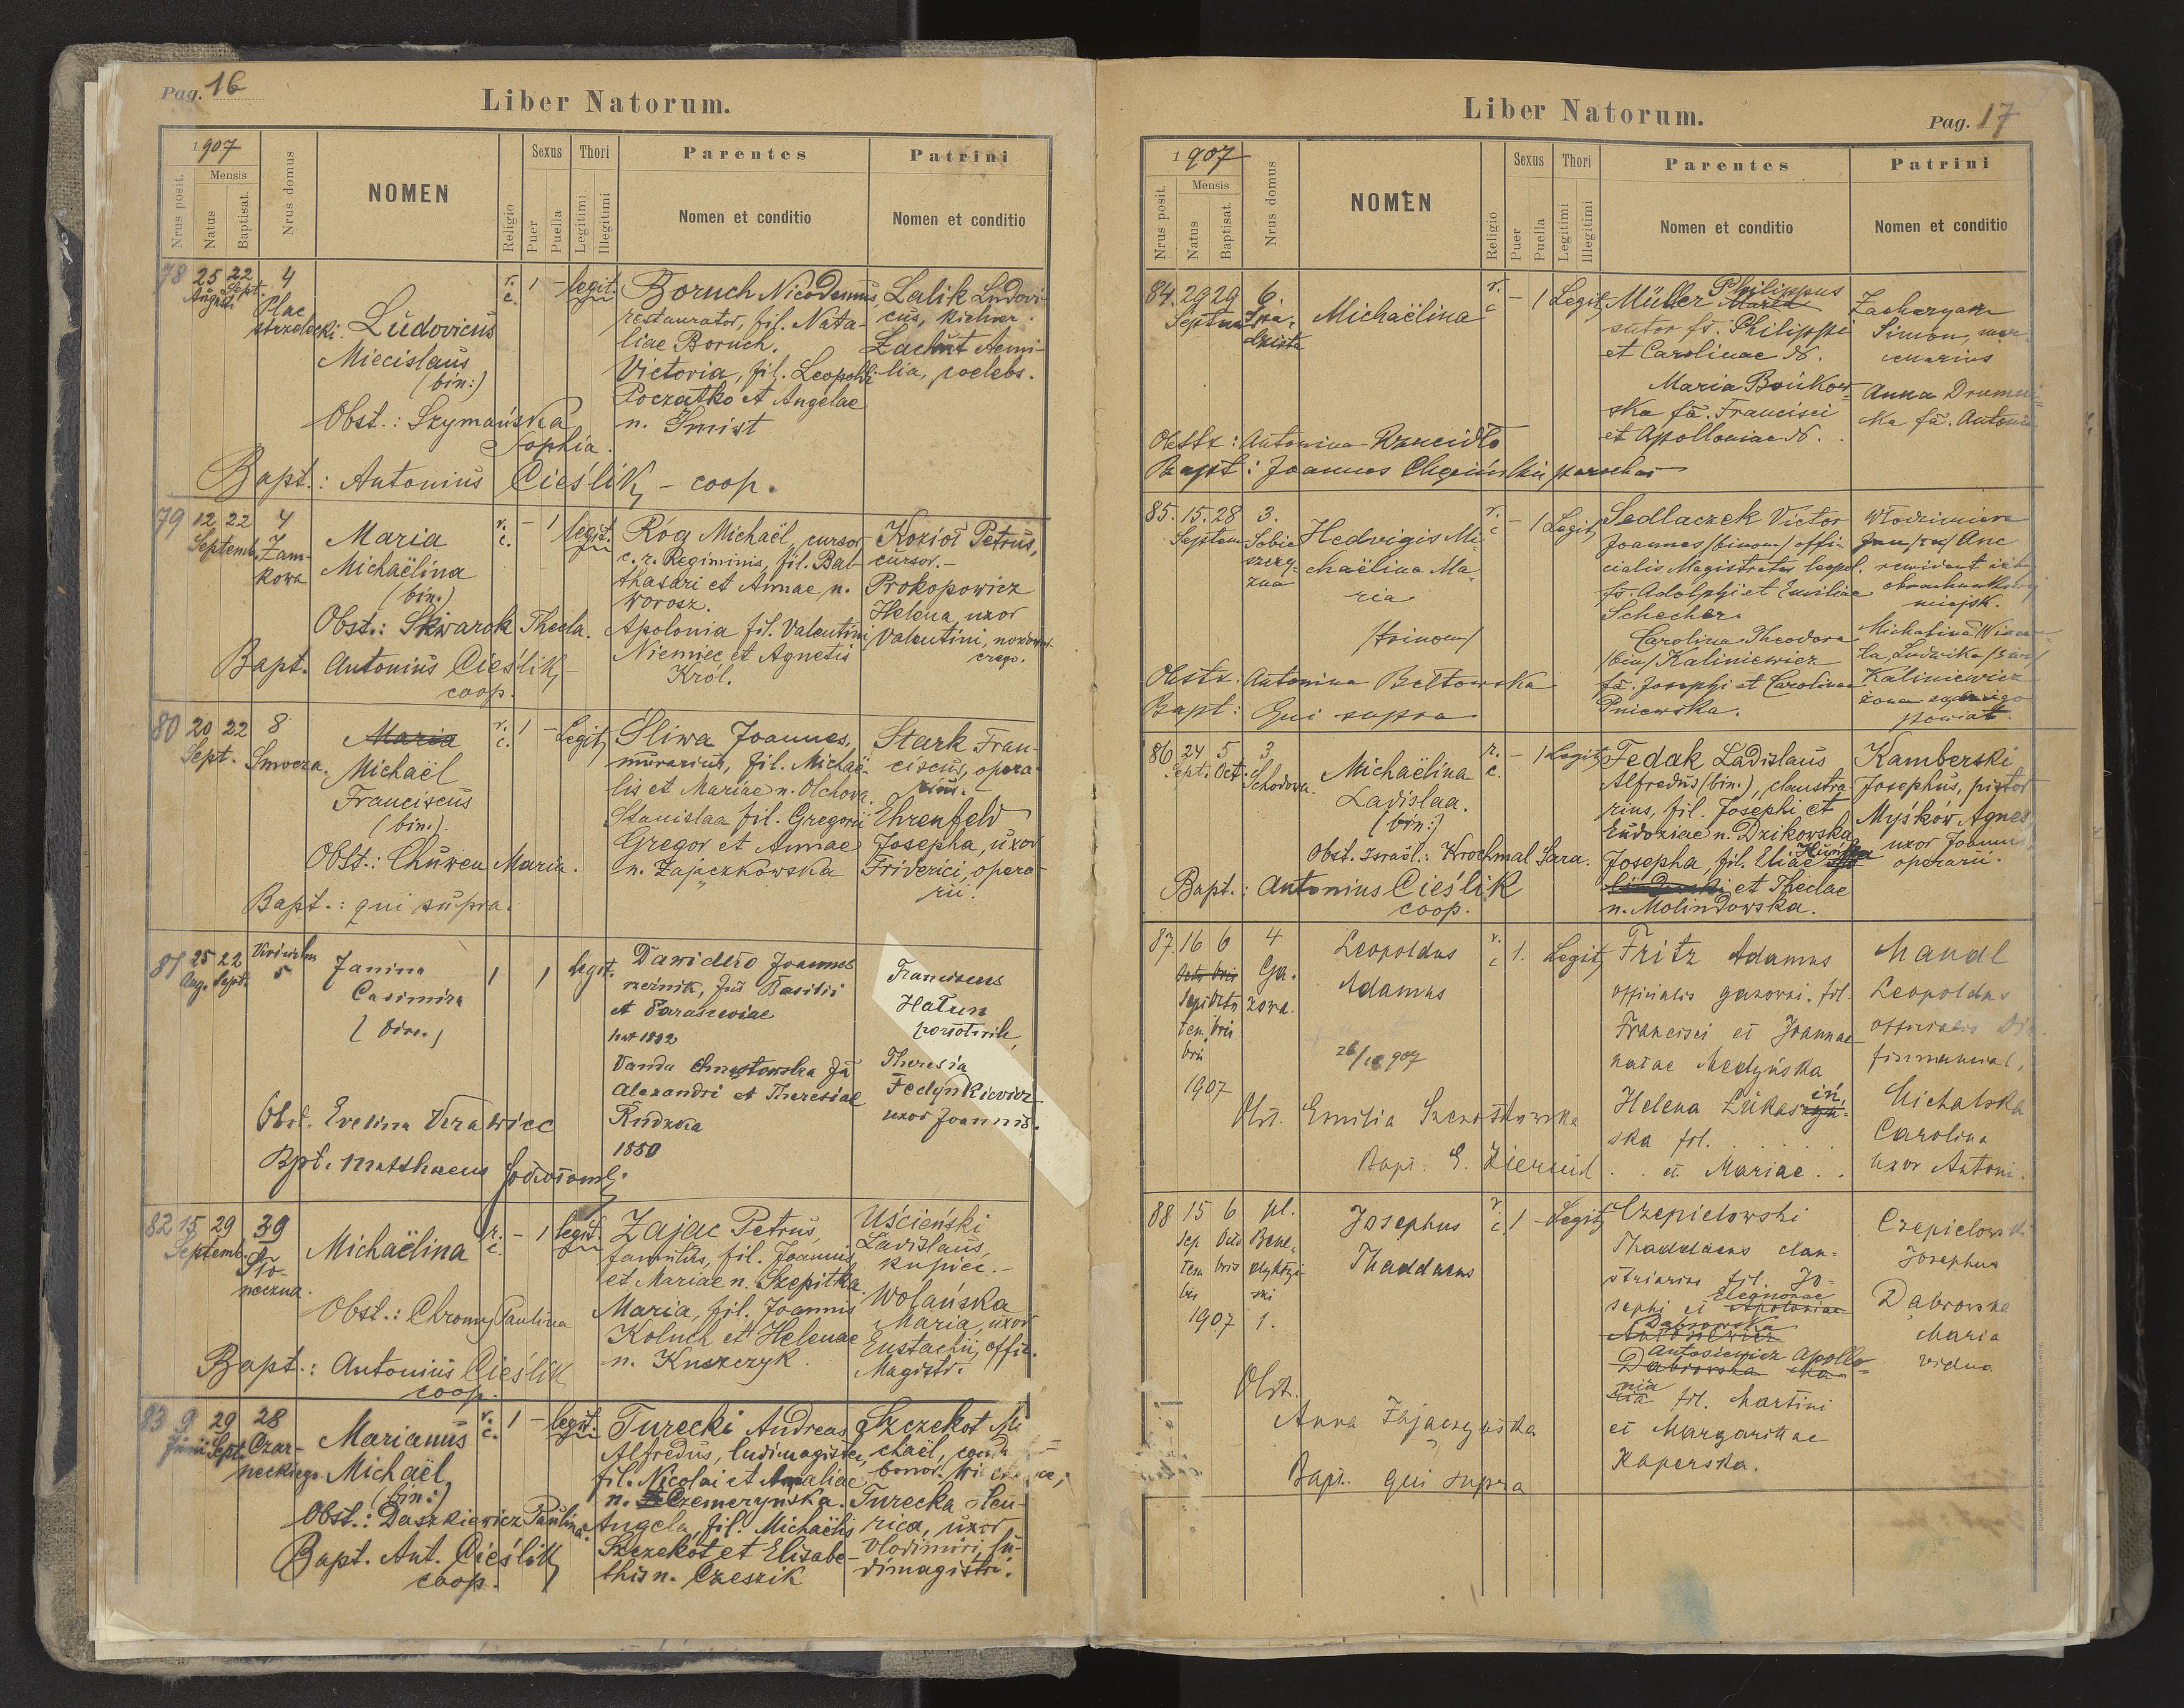 Pag. 16
Liber Natorum.
1907
Nrus posit.
Mensis
Natus
Baptisat.
Nrus domus
NOMEN
Religio
Sexus
Puer
Puella
Thori
Legitimi
Illegitimi
Parentes
Nomen et conditio
Patrini
Nomen et conditio
78 25 22 4
August. Sept.
Plac
strzelecki.
Ludovicus
Miecislaus
(bin:)
Obst.: Szymańska
Sophia.
Bapt.: Antonius Cieślik, - coop.
r. c. 1 - legit.
Boruch Nicodemus,
restaurator, fil. Nata-
liae Boruch.
Victoria, fil. Leopoldi
Początko et Angelae
n. Smist
Lalik Ludovi-
cus, kielner.
Zachut Aemi-
lia, coelebs.
79 12 22 4
Septemb.
Zam-
kowa
Maria
Michaëlina
(bin.)
Obst.: Skwarok Thecla.
Bapt. Antonius Cieślik, -
coop.
r. c. - 1 legit.
Rog Michaël, cursor
c. r. Regiminis, fil. Bal-
thasari et Annae n.
Worosz.
Apolonia fil. Valentini
Niemiec et Agnetis
Król.
Kozioł Petrus,
cursor. -
Prokopowicz
Helena uxor
Valentini,
80 20 22 8
Sept. Smocza.
Maria
Michaël
Franciscus
(bin.).
Obst.: Chuwen Maria.
Bapt.: qui supra.
r. c. 1 - Legit,
Śliwa Joannes,
murarius, fil. Michaë-
lis et Mariae n. Olchova.
Stanislaa fil. Gregorii
Gregor et Annae
n. Zajaczkowska
Stark Fran-
ciscus, opera-
rius. -
Ehrenfeld
Josepha, uxor
Friderici, opera-
rii.
81 25 22
Aug. Sept.
5
Janina
Casimira
(bin.)
Obst. Evelina Verawiec
Bpt. Matthaeus
1 1 legit.
Dawidko Joannes
rzeźnik, fus Basilii
et Parasceviae
nat 1882
Vanda Chrustowska fa
Alexandri et Theresiae
Rudzka
1880
Franciscus
Hatun
Theresia
Fedynkiewicz
uxor Joannis.
82 15 29 39
Septemb.
Sło-
neczna.
Michaëlina
Obst.: Chromy Paulina
Bapt.: Antonius Cieślik
coop.
r. c. - 1 legit.
Zajac Petrus,
famulus, fil. Joannis
et Mariae n. Szepitka.
Maria, fil. Joannis
Koluch et Helenae
n. Kuszczyk.
Uścieński
Ladislaus,
kupiec. -
Wolańska
Maria, uxor
Eustachii, offic.
Magistr.
83 9 29 28
Junii Sept. Czar-
neckiego
Marianus
Michaël,
(bin:)
Obst.: Daszkiewicz Paulina.
Bapt. Ant. Cieślik,
coop.
r. c. 1 - legit.
Turecki Andreas
Alfredus, ludimagister,
fil. Nicolai et Amaliae
n. Czemerynska.
Angela, fil. Michaëlis
Szczekot et Elisabe-
this n. Czeszik
Szczekot Mi
chaël,
bonor.
Turecka Hen-
rica, uxor
Vlodimiri, lu-
dimagistri.
Liber Natorum.
Pag. 17
1907
Nrus posit.
Mensis
Natus
Baptisat.
Nrus domus
NOMEN
Religio
Sexus
Puer
Puella
Thori
Legitimi
Illegitimi
Parentes
Nomen et conditio
Patrini
Nomen et conditio
84. 29 29 6
Michaëlina
Obstr: Antonina Rzneidło
Bapt: Joannes parochus
r. c - 1 Legit,
Müller Philippus
sutor fs. Philippi
et Carolinae N.
Maria Bońkow-
ska fa. Francisci
et Apolloniae N.
Zacharyasz
Simon, mer-
cenarius
Anna
fa. Antonii
85. 15. 28 3.
Septem Sobie
szczy-
zna
Hedvigis Mi-
chaëlina Ma-
ria
/trinom/
Obstr. Antonina Bełtowska
Bapt: Qui supra
r. c - 1 Legit,
Sedlaczek Victor
Joannes /binom/ offi-
cialis Magistratus leopol.
fs. Adolphi et Emiliae
Schecher.
Carolina Theodora
/bin/ Kaliniewicz
fa. Josephi et Carolinae
Pniewska.
Włodzimierz
rewident izby
obrachunkowej
miejsk.
Michalina
Kaliniewicz
żona
powiat.
86 24 5 3
Sept. Oct. Schodova.
Michaëlina
Ladislaa.
(bin:)
Obst. Israël.: Krochmal Sara.
Bapt.: Antonius Cieślik
coop.
r. c. - 1 Legit,
Fedak Ladislaus
Alfredus (bin.), claustra-
rius, fil. Josephi et
Eudoxiae n. Dzikowska
Josepha, fil. Eliae
et Theclae
n. Molindowska.
Kamberski
Josephus, pistor
Myśków Agnes
uxor Joannis,
operarii.
87. 16 6 4
Octo bris
Septem bris
Ga-
zowa.
1907
Leopoldus
Adamus
26/10 907
Obst. Emilia
Bapt. G. Ziernid
r. c 1. Legit,
Fritz Adamus
officialis gazowni. fil.
Francisci et Joannae
natae Medyńska
Helena Łukasin-
ska fil. . . . . .
. . et Mariae . .
Mandl
Leopoldus
officialis
Michalska
Carolina
uxor Antoni.
88 15 6 pl.
Sep Octo Bene-
tem bris dyktyń-
bris ski
1907 1.
Josephus
Thaddaeus
Obst.
Anna Zajaczyńska
Bapt. qui supra
r. c 1 - Legit,
Czepielowski
Thaddaeus clau-
striarius fil. Jo-
sephi et Apoloniae
Eleonorae
Dąbrowska
Antosiewicz
Antosiewicz Apollo-
Dabrowska Ma-
nia
ria fil. Martini
et Margaritae
Kaperska.
Czepielowski
Josephus
Dąbrowska
Maria
vidua